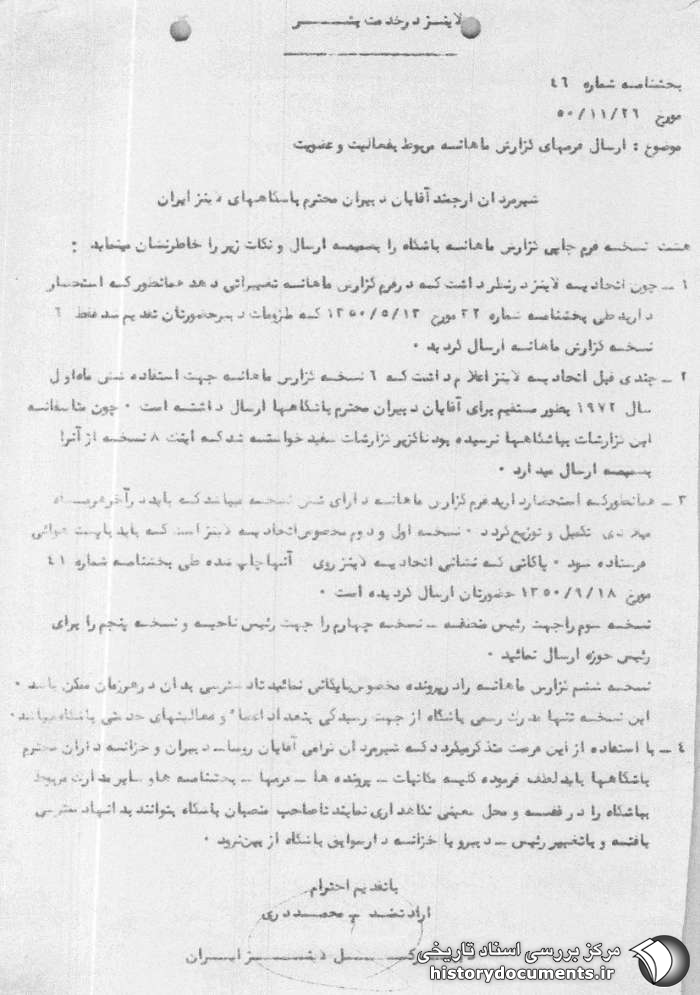 لاینز در خدمت بشر
بخشنامه شماره ۴۶
مورخ ۵۰/۱۱/۲۶
موضوع : ارسال فرمهای گزارش ماهانه مربوط بفعالیت و عضویت
شیرمردان ارجمند آقایان دبیران محترم باشگاههای لاینز ایران
هشت نسخه فرم چاپی گزارش ماهانه باشگاه را بضمیمه ارسال و نکات زیر را خاطرنشان مینماید :
۱ ـ چون اتحادیه لاینز در نظر داشت که در فرم گزارش ماهانه تغییراتی دهد همانطور که استحضار
دارید طی بخشنامه شماره ۲۲ مورخ ۱۳۵۰/۵/۱۳ که ملزومات دبیر حضورتان تقدیم شد فقط ۶
نسخه گزارش ماهانه ارسال گردید .
۲ ـ چندی قبل اتحادیه لاینز اعلام داشت که ۶ نسخه گزارش ماهانه جهت استفاده شش ماه اول
سال ۱۹۷۲ بطور مستقیم برای آقایان دبیران محترم باشگاهها ارسال داشته است . چون متاسفانه
این گزارشات بباشگاهها نرسیده بود ناگزیر گزارشات سفید خواسته شد که اینک ۸ نسخه از آنرا
بضمیمه ارسال میدارد .
۳ ـ همانطور که استحضار دارید فرم گزارش ماهانه دارای شش نسخه میباشد که باید در آخر هر ماه
میلادی تکمیل و توزیع گردد . نسخه اول و دوم مخصوص اتحادیه لاینز است که باید با پست هوائی
فرستاده شود . پاکاتی که نشانی اتحادیه لاینز روی آنها چاپ شده طی بخشنامه شماره ۴۱
مورخ ۱۳۵۰/۹/۱۸ حضورتان ارسال گردیده است .
نسخه سوم را جهت رئیس منطقه ـ نسخه چهارم را جهت رئیس ناحیه و نسخه پنجم را برای
رئیس حوزه ارسال نمائید .
نسخه ششم گزارش ماهانه را در پرونده مخصوص بایگانی نمائید تا دسترسی بدان در هر زمان ممکن باشد .
این نسخه تنها مدرک رسمی باشگاه از جهت رسیدگی بتعداد اعضاء و فعالیتهای خدمتی باشگاه میباشد .
۴ ـ با استفاده از این فرصت متذکر میگردد که شیرمردان گرامی آقایان روسا ـ دبیران و خزانه داران محترم
باشگاهها باید لطف فرموده کلیه مکاتبات ـ پرونده ها ـ فرمها ـ بخشنامه ها و سایر مدارک مربوط
بباشگاه را در قفسه و محل معینی نگاهداری نمایند تا صاحب منصبان باشگاه بتوانند بدانها دسترسی
یافته و با تغییر رئیس ـ دبیر و یا خزانه دار سوابق باشگاه از بین نرود .
با تقدیم احترام
ارادتمند ـ محمد دری
لاینز ایران
مرکز بررسی اسناد تاریخی
historydocuments.ir